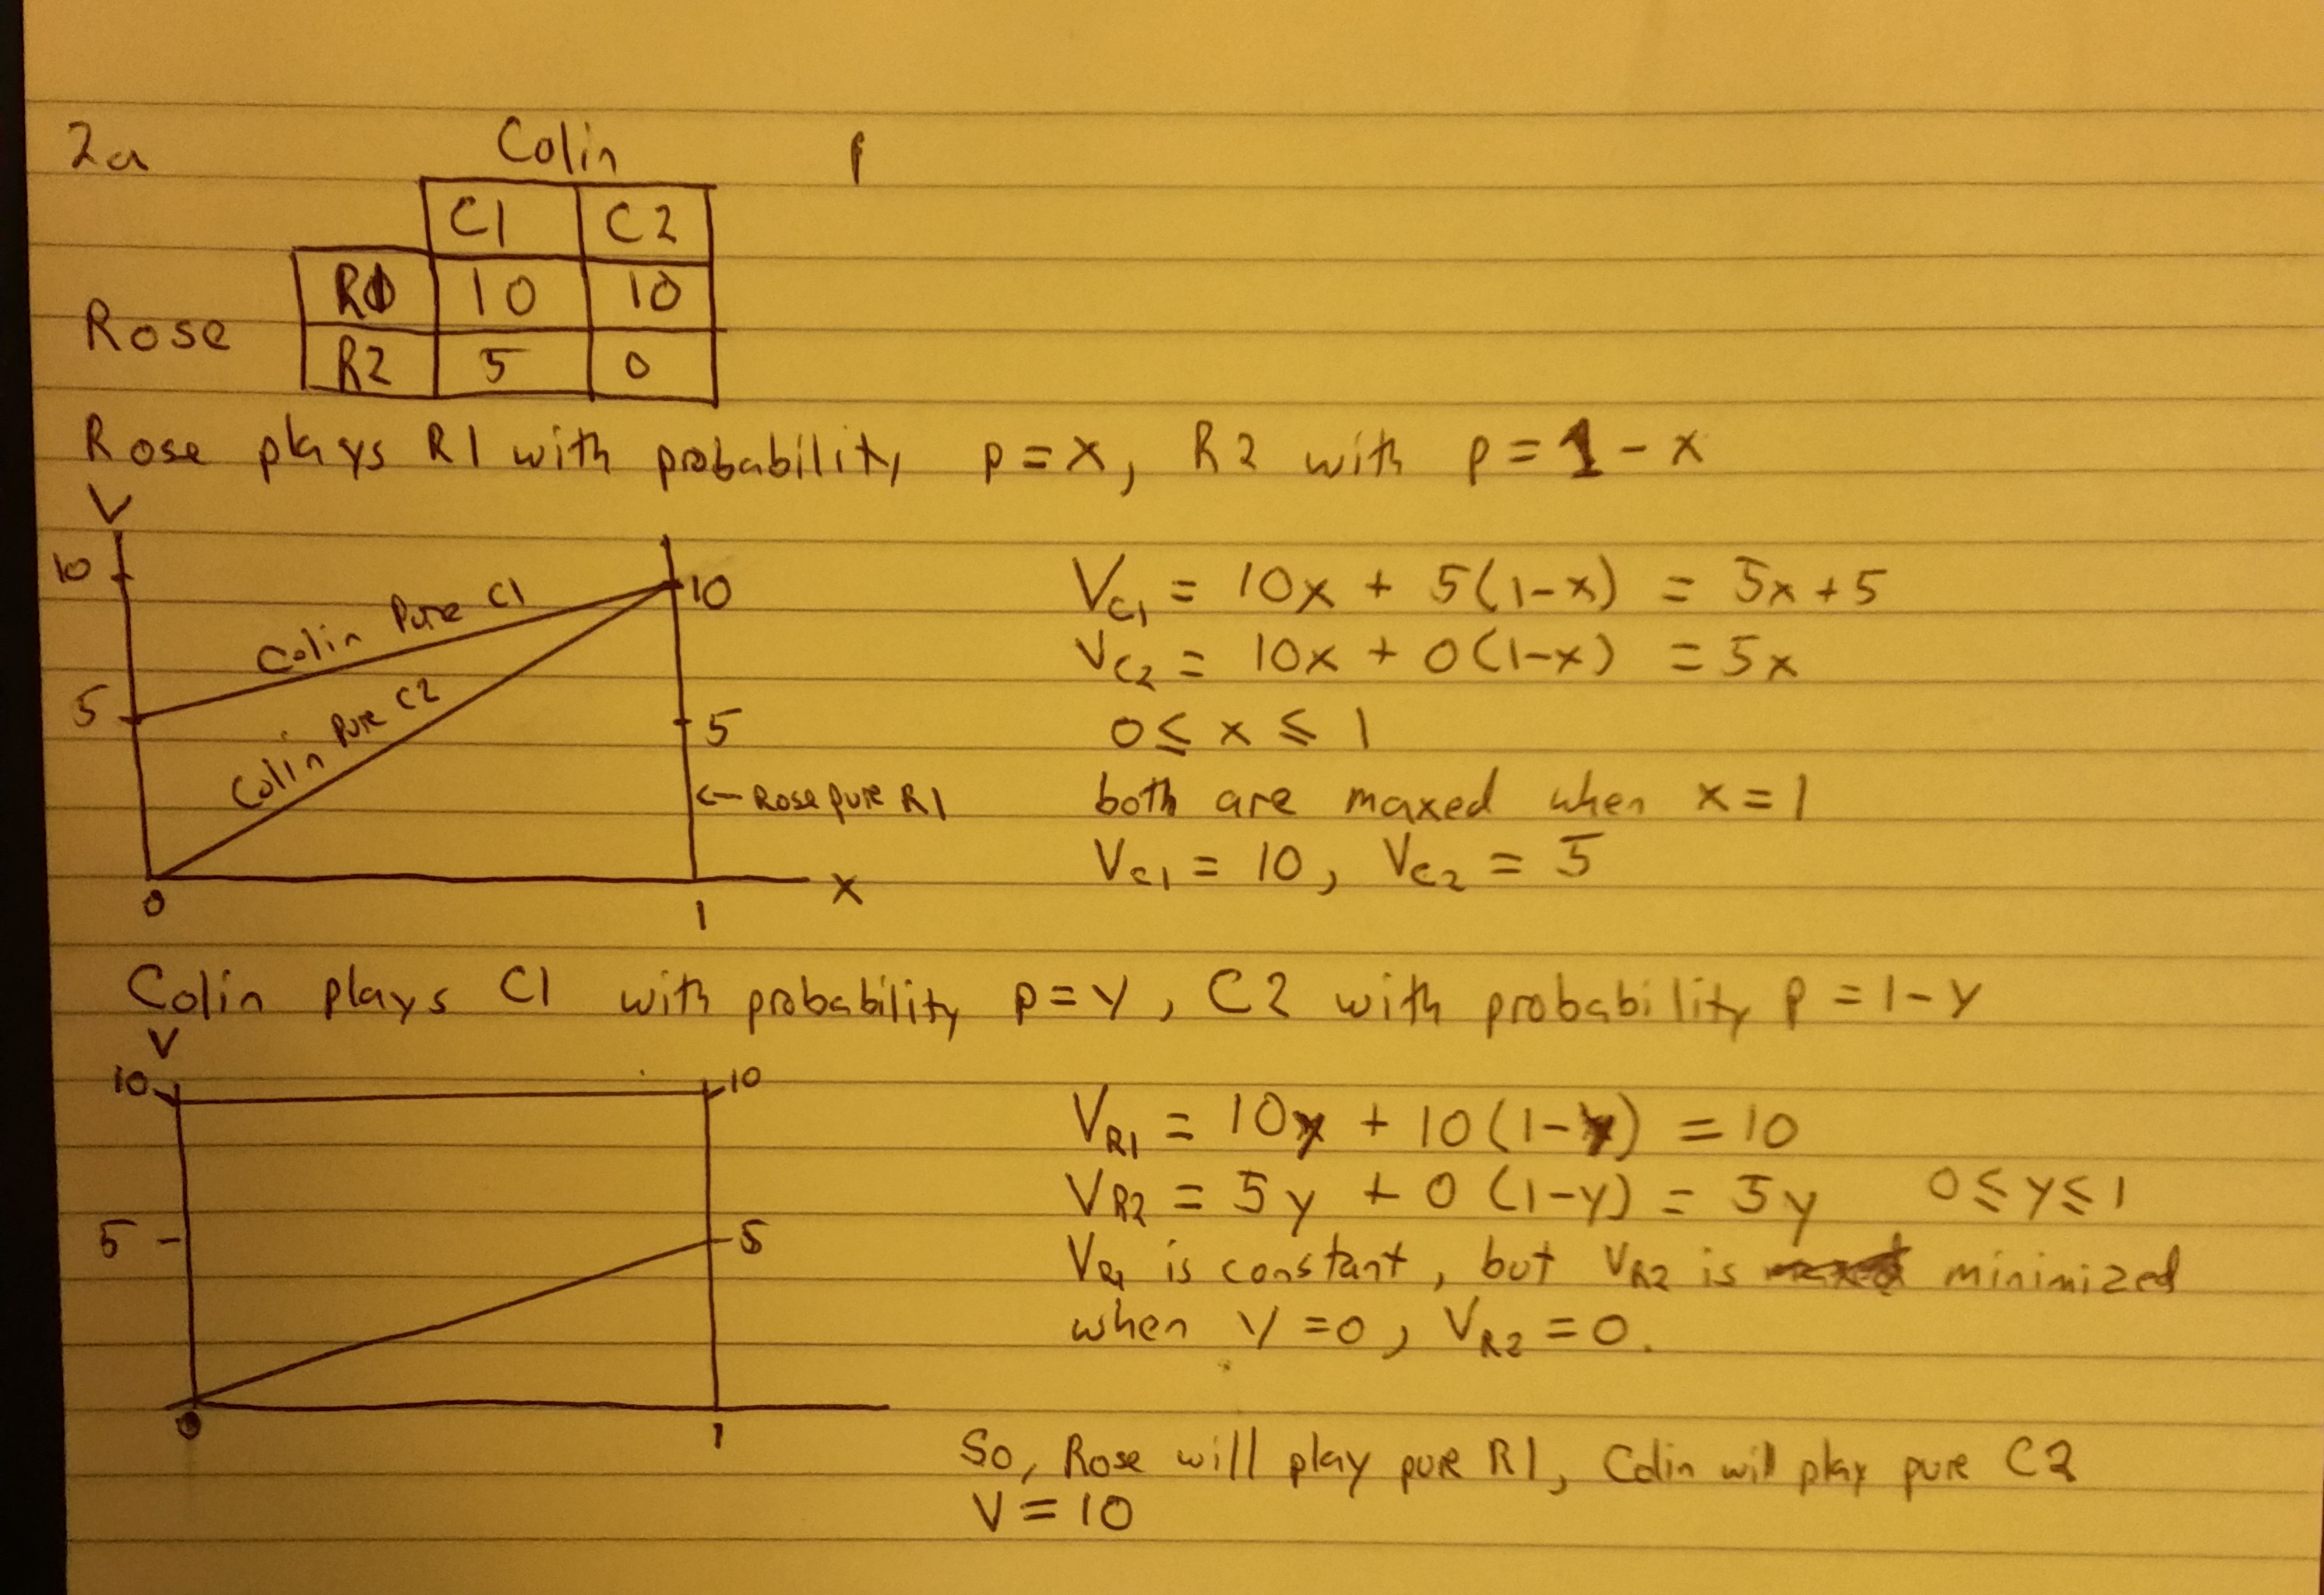 2a
Colin
C1 C2
Rose R1 10 10
R2 5 0
Rose plays R1 with probability p=x, R2 with p=1-x
V
10
5
0
Colin pure C1
Colin pure C2
10
5
1
x
←Rose pure R1
V_C1 = 10x + 5(1-x) = 5x+5
V_C2 = 10x + 0(1-x) = 5x
0≤x≤1
both are maxed when x=1
V_C1 = 10, V_C2 = 5
Colin plays C1 with probability p=y, C2 with probability p=1-y
V
10
5
0
10
5
1
V_R1 = 10y + 10(1-y) = 10
V_R2 = 5y + 0(1-y) = 5y 0≤y≤1
V_R1 is constant, but V_R2 is minimized
when y=0, V_R2=0.
So, Rose will play pure R1, Colin will play pure C2
V=10